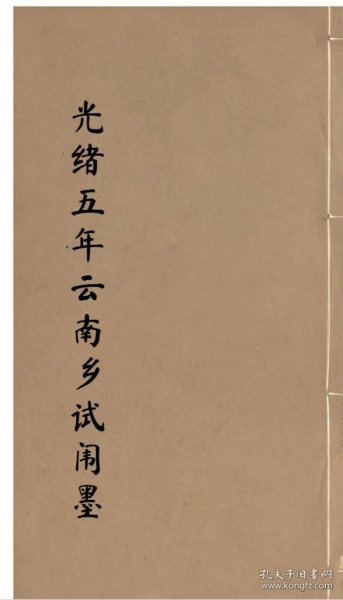 光绪五年云南乡试闱墨
孔夫子旧书网
www.kongfz.com